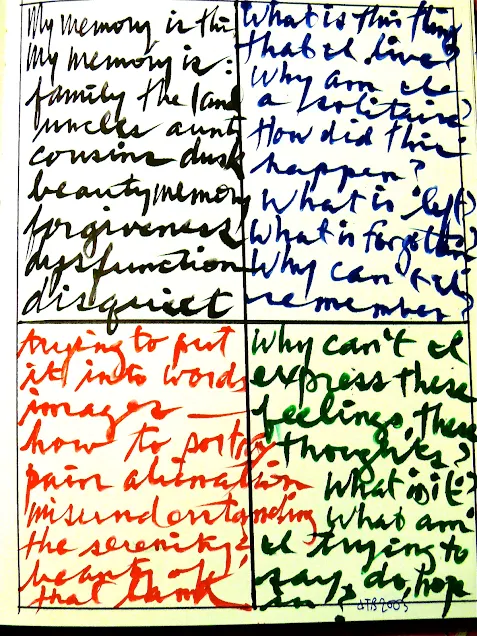 My memory is thi
My memory is:
family the land
uncles aunts
cousins dusk
beauty memory
forgiveness
dysfunction
disquiet
What is this thing
that I live?
Why am I
a solitaire?
How did this
happen?
What is left?
What is forgotten?
Why can't I
remember?
trying to put
it into words
images —
how to portray
pain alienation
misunderstanding
the serenity?
beauty of
that land
Why can't I
express these
feelings, these
thoughts?
What is it?
What am
I trying to
say, do, hope
JTB 2005